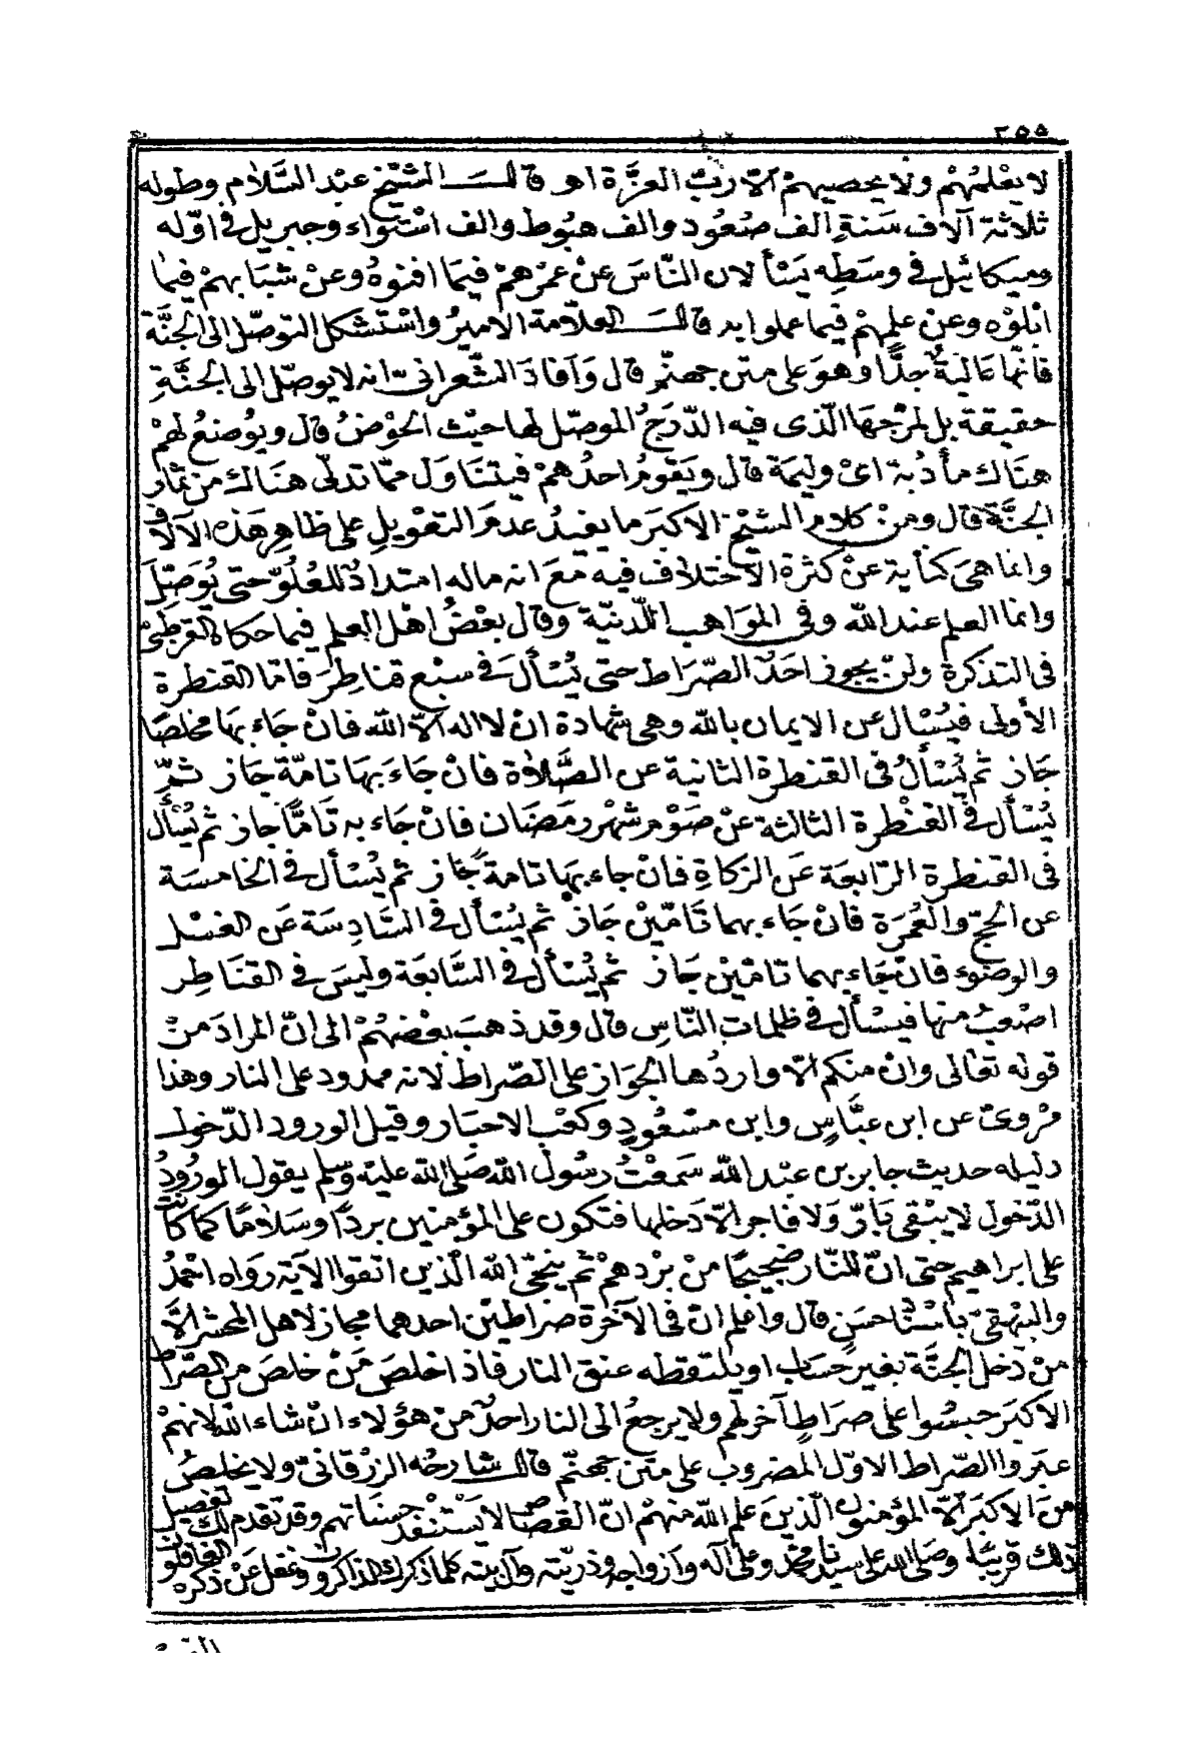 ٢٥٥
لا يعلمهم ولا يحصيهم الا ربّ العزّة اهـ قال الشيخ عبد السّلام وطوله
ثلاثة آلاف سنة الف صُعُود والف هبُوط والف اسْتواء وجبريل في اوّله
وميكائيل في وسَطِه يسْألان النّاسَ عنْ عمْرهمْ فيمَا افنوْهُ وعنْ شبَابهمْ فيمَا
ابْلوْه وعنْ علمِهمْ فيما عملوا به قال العلاّمة الأميرُ واسْتشكل التوصّل الى الجنَّة
فانّها عَاليةٌ جدًّا وهوَ على متْن جهنّم قال وَافادَ الشّعرانىّ انه لا يوصّل إلى الجنَّةِ
حقيقة بل لمرْجهَا الّذى فيه الدّرَجُ الموصّل لها حيْث الحوْضُ قال ويُوضعُ لهمْ
هنَاك مأدُبة اىْ وليمَة قال ويَقومُ احدُهمْ فيتنَاوَل ممّا تدلّى هنَاك منْ ثمَار
الجنَّة قال ومنْ كلام الشيْخ الاكبَر ما يفيدُ عدمَ التعْويلِ على ظاهِر هَذه الآلاف
وانما هىَ كنَاية عنْ كثرَة الاختلاف فيه معَ انه ماله امتدادٌ للعُلُوّ حتى يُوَصِّلَ
وانما العلم عند الله وفى الموَاهب اللّدنيّة وقال بعْضُ اهْل العلم فيما حكاه القرطبىّ
فى التذكرة ولنْ يجوز احَدٌ الصّرَاط حتى يُسْألَ فى سبْع قناطِرَ فامّا القنطرة
الأولى فيُسْال عن الايمان بالله وهى شهَادة انْ لا اله الاّ الله فانْ جَاء بهَا مخلصًا
جَاز ثم يُسْألُ فى القنطرة الثانية عن الصَّلاة فانْ جَاءَ بهَا تامّة جَاز ثمّ
يُسْأل فى القنْطرة الثالثة عنْ صَوْم شهْر رمَضَان فانْ جَاء به تَامًّا جاز ثم يُسْأل
فى القنطرة الرّابعَة عَن الزكاةِ فانْ جاء بهَا تامةً جَاز ثم يُسْأل فى الخامسَة
عن الحجّ والعُمرَة فانْ جَاء بهما تَامّيْن جَاز ثم يُسْأل فى السّادِسَة عَن الغسْل
والوضُوء فانْ جَاء بهما تامّيْن جَاز ثم يُسْأل فى السَّابعَة وليسَ فى القنَاطِر
اصْعبُ منها فيسْأل فى ظلمات النّاس قال وقد ذهبَ بعْضهُمْ الى انّ المرادَ منْ
قوله تعَالى وانْ منكم الاّ واردُها الجوَاز على الصّراط لانه ممدُود على النار وهذا
مرْوىّ عن ابن عبَّاسٍ وابن مسْعُودٍ وكعْب الاحبَار وقيل الورود الدّخول
دليله حديث جابر بن عبْد الله سَمعْتُ رسُول الله صلى الله عليه وسلم يقول الورُودُ
الدّخول لا يبْقى بَارّ وَلا فاجر الاّ دَخلها فتكون على المؤمنين بردًا وسَلامًا كما كانت
على ابراهيم حتى انّ للنّار ضجيجًا منْ بَرْدهمْ ثم ينجّى الله الّذين اتقوا الآية رَوَاه احْمدُ
والبيْهقىّ باسْنَاد حسَنٍ قال وَاعْلم انّ فى الآخرة صرَاطيْن احدهما مجاز لاهل المحشر الاَّ
منْ دَخل الجنَّة بغير حسَاب او يلتقطه عنق النار فاذا خلصَ مَنْ خلصَ من الصّرَاط
الاكبَر حبسُوا على صرَاطٍ آخر لهم ولا يرجعُ الى النار احدٌ منْ هؤلاء انْ شاء الله لانهمْ
عبَرُوا الصّراط الاوّل المضروب على متن جهنّم قال شارحُه الزرْقانىّ ولا يخلصُ
منَ الاكبَر الاّ المؤمنون الّذينَ علم الله منهمْ انّ القصَاصَ لا يَسْتنفدُ حسنَاتهم وقد تقدم لك تفصيل
ذلك قريبًا وصَلى الله على سيدنا محمّد وعلى آله وأزواجه وذريّته وآل بيته كلما ذكرك الذاكرون وغفل عنْ ذكره الغافلون